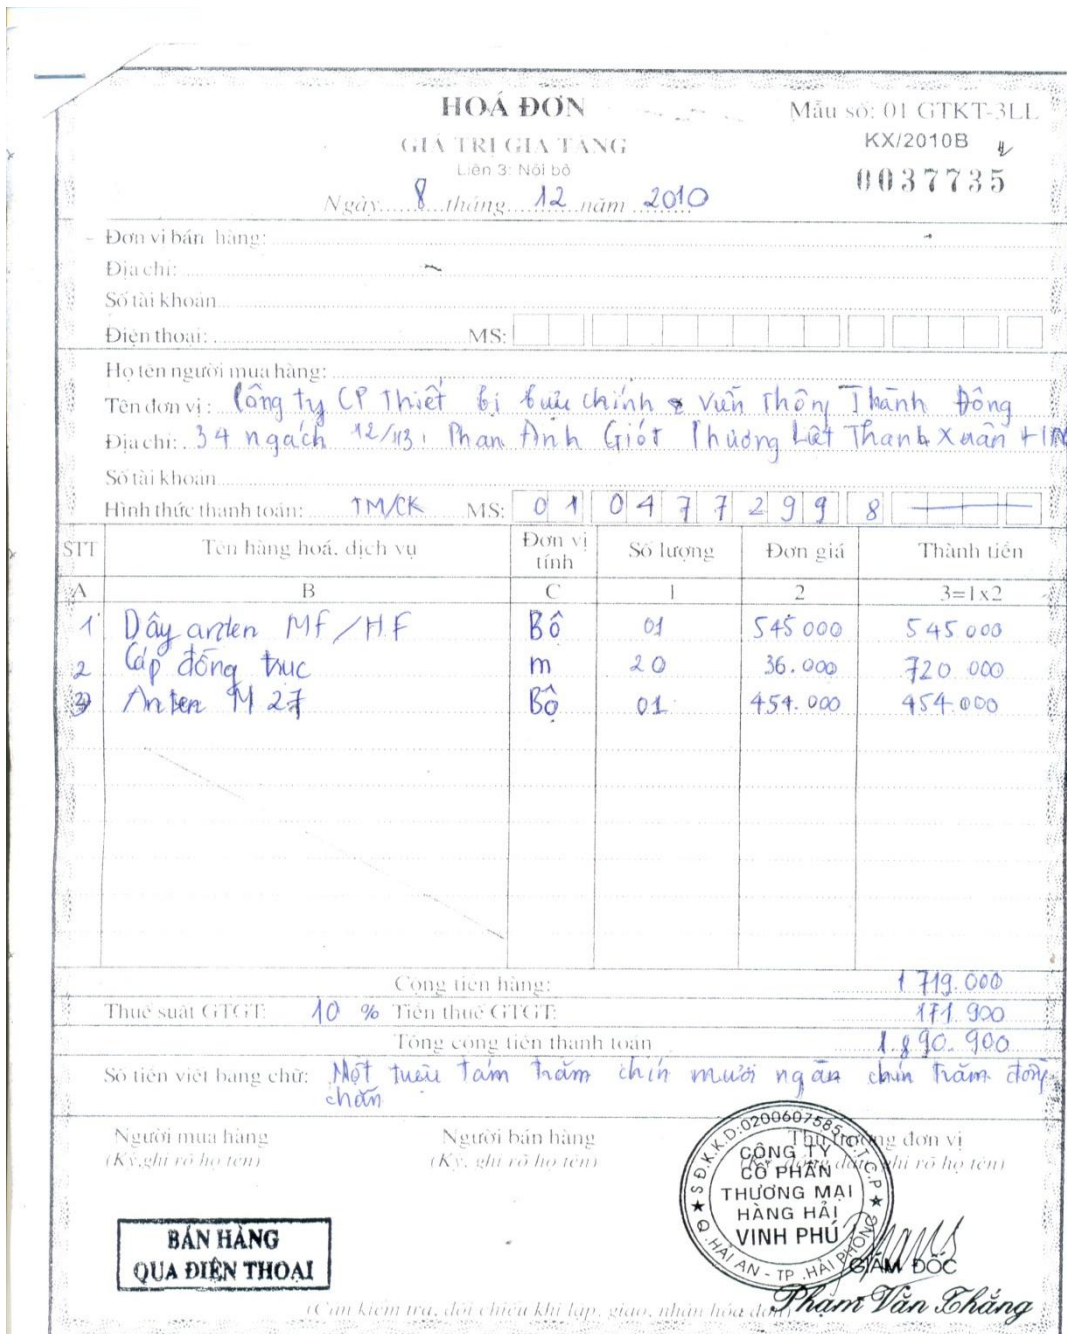 HOÁ ĐƠN
Mẫu số: 01 GTKT-3LL
GIÁ TRỊ GIA TĂNG
KX/2010B
Liên 3: Nội bộ
0037735
Ngày 8 tháng 12 năm 2010
Đơn vị bán hàng:
Địa chỉ:
Số tài khoản
Điện thoại: MS:
Họ tên người mua hàng:
Tên đơn vị: Công ty CP Thiết bị bưu chính viễn Thông Thành Đông
Địa chỉ: 34 ngách 12/113, Phan Đình Giót Phương Liệt Thanh Xuân HN
Số tài khoản
Hình thức thanh toán: TM/CK MS: 0104772998
STT Tên hàng hoá, dịch vụ Đơn vị tính Số lượng Đơn giá Thành tiền
A B C 1 2 3=1x2
1 Dây anten MF/HF Bộ 01 545 000 545 000
2 Cáp đồng trục m 20 36.000 720 000
3 Anten M 27 Bộ 01 454.000 454.000
Cộng tiền hàng: 1 719.000
Thuế suất GTGT: 10 % Tiền thuế GTGT: 171.900
Tổng cộng tiền thanh toán 1.890.900
Số tiền viết bằng chữ: Một triệu tám trăm chín mươi ngàn chín trăm đồng
chẵn
Người mua hàng Người bán hàng Thủ trưởng đơn vị
(Ký, ghi rõ họ tên) (Ký, ghi rõ họ tên) (Ký, đóng dấu, ghi rõ họ tên)
S.Đ.K.K.D:0200607585.C.T.C.P
CÔNG TY
CỔ PHẦN
THƯƠNG MẠI
HÀNG HẢI
VINH PHÚ
Q. HẢI AN - TP. HẢI PHÒNG
BÁN HÀNG
QUA ĐIỆN THOẠI
GIÁM ĐỐC
Phạm Văn Thắng
(Cần kiểm tra, đối chiếu khi lập, giao, nhận hóa đơn)